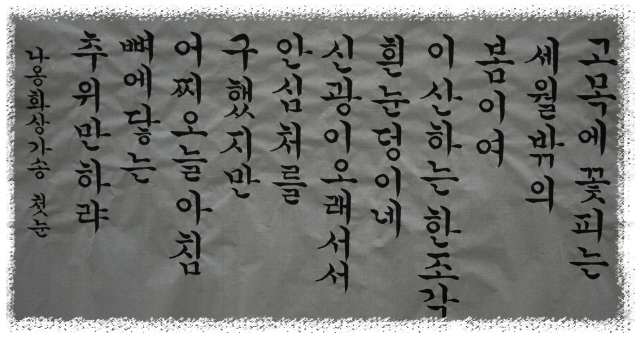 고목에 꽃피는
세월 밖의
봄이여
이 산하는 한 조각
흰 눈덩이네
신광이 오래 서서
안심처를
구했지만
어찌 오늘 아침
뼈에 닿는
추위만 하랴
나옹화상가송 첫눈